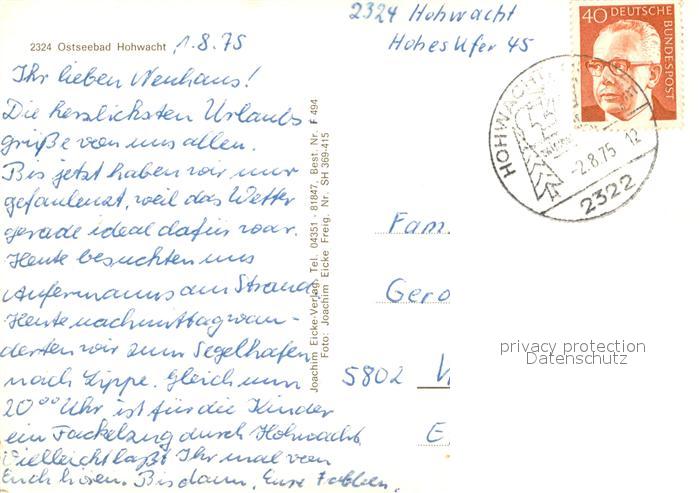 2324 Ostseebad Hohwacht
1.8.75
2324 Hohwacht
Hohes Ufer 45
Ihr lieben Neuhaus!
Die herzlichsten Urlaubs
grüße von uns allen.
Bis jetzt haben wir nur
gefaulenzt, weil das Wetter
gerade ideal dafür war.
Heute besuchten uns
am Strand.
Heute nachmittag wan-
derten wir zum Segelhafen
nach Lippe. Gleich um
20⁰⁰ Uhr ist für die Kinder
ein Fackelzug durch Hohwacht.
Vielleicht laßt Ihr mal von
Euch hören. Bis dann, Eure
Joachim Eicke-Verlag, Tel. 04351 - 81847, Best. Nr. F 494
Foto: Joachim Eicke Freig. Nr. SH 369-415
40 DEUTSCHE
BUNDESPOST
HOHWACHT
-2.8.75 12
2322
Fam.
Gero
5802 W
E
privacy protection
Datenschutz